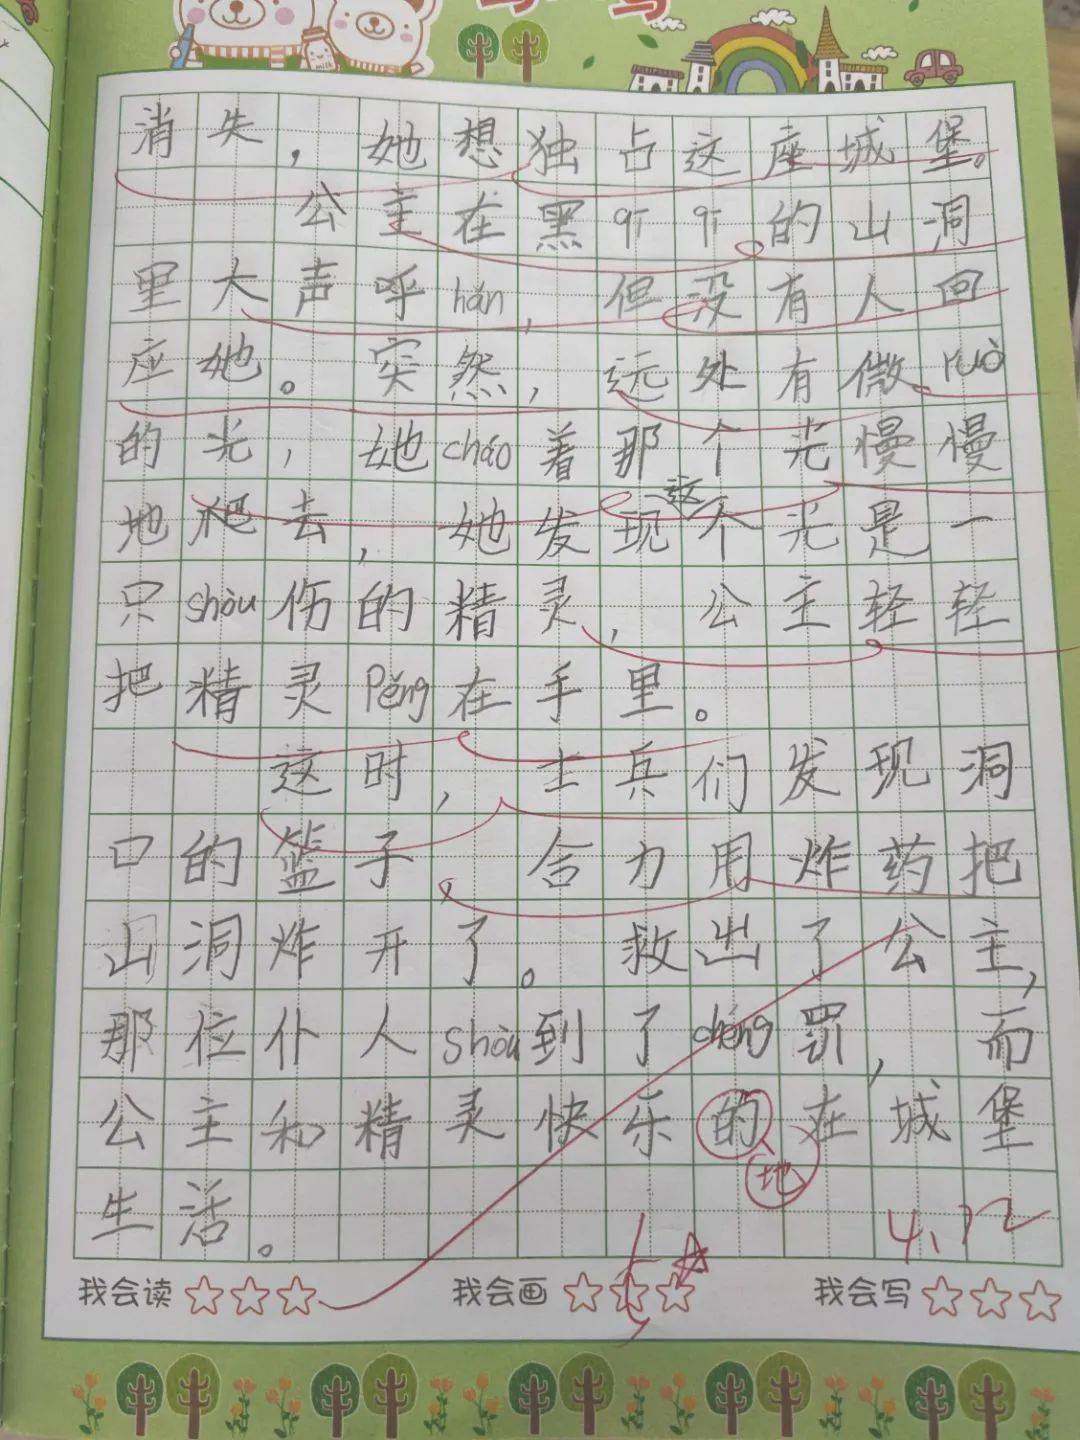 消失，她想独占这座城堡。
公主在黑qīqī的山洞
里大声呼hǎn，但没有人回
应她。突然，远处有微ruò
的光，她cháo着那个光慢慢
这
地爬去，她发现个光是一
只shòu伤的精灵，公主轻轻
把精灵Pěng在手里。
这时，士兵们发现洞
口的篮子 合力用炸药把
山洞炸开了。救出了公主，
那位仆人shòu到了chéng罚，而
公主和精灵快乐的在城堡
地
生活。
4.12
我会读 我会画 我会写